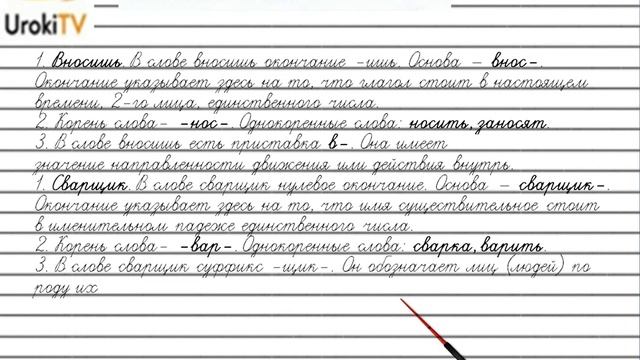 UrokiTV
1. Вносишь. В слове вносишь окончание -ишь. Основа — внос-.
Окончание указывает здесь на то, что глагол стоит в настоящем
времени, 2-го лица, единственного числа.
2. Корень слова- -нос-. Однокоренные слова: носить, заносят.
3. В слове вносишь есть приставка в-. Она имеет
значение направленности движения или действия внутрь.
1. Сварщик. В слове сварщик нулевое окончание. Основа — сварщик-.
Окончание указывает здесь на то, что имя существительное стоит
в именительном падеже единственного числа.
2. Корень слова- -вар-. Однокоренные слова: сварка, варить.
3. В слове сварщик суффикс -щик-. Он обозначает лиц (людей) по
роду их